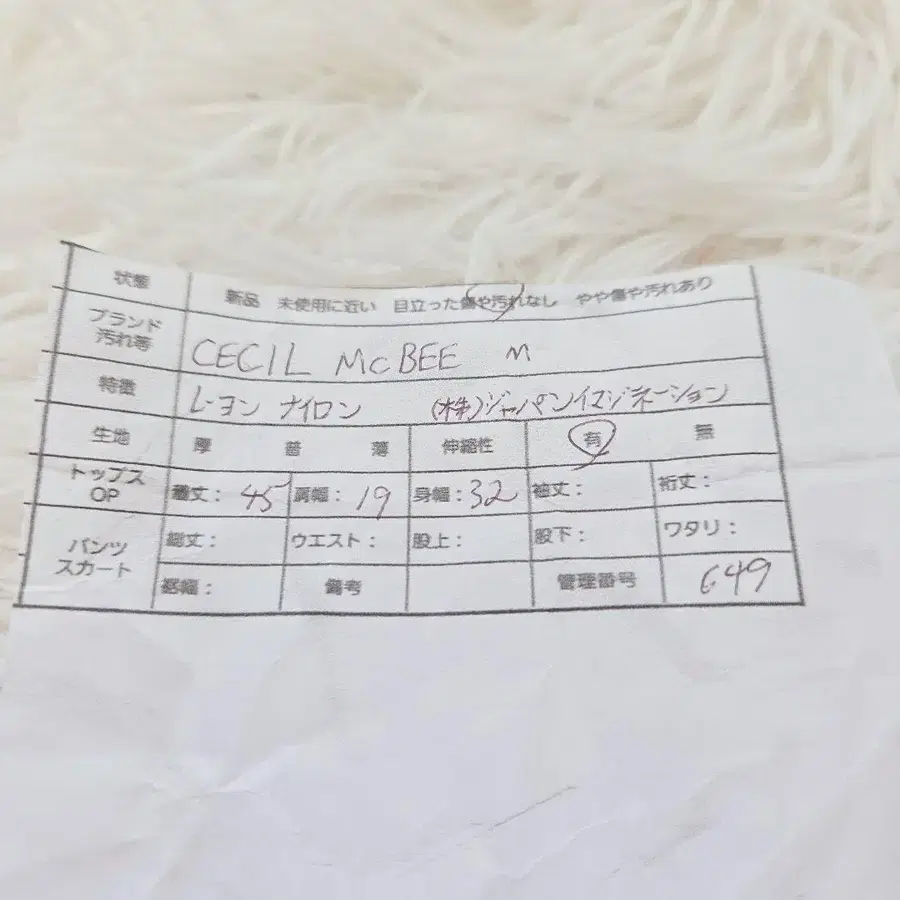 状態 新品 未使用に近い 目立った傷や汚れなし やや傷や汚れあり
ブランド
汚れ等 CECIL McBEE M
特徴 レーヨン ナイロン (株)ジャパンイマジネーション
生地 厚 普 薄 伸縮性 有 無
トップス
OP 着丈: 45 肩幅: 19 身幅: 32 袖丈: 裄丈:
パンツ
スカート 総丈: ウエスト: 股上: 股下: ワタリ:
裾幅: 備考 管理番号 649